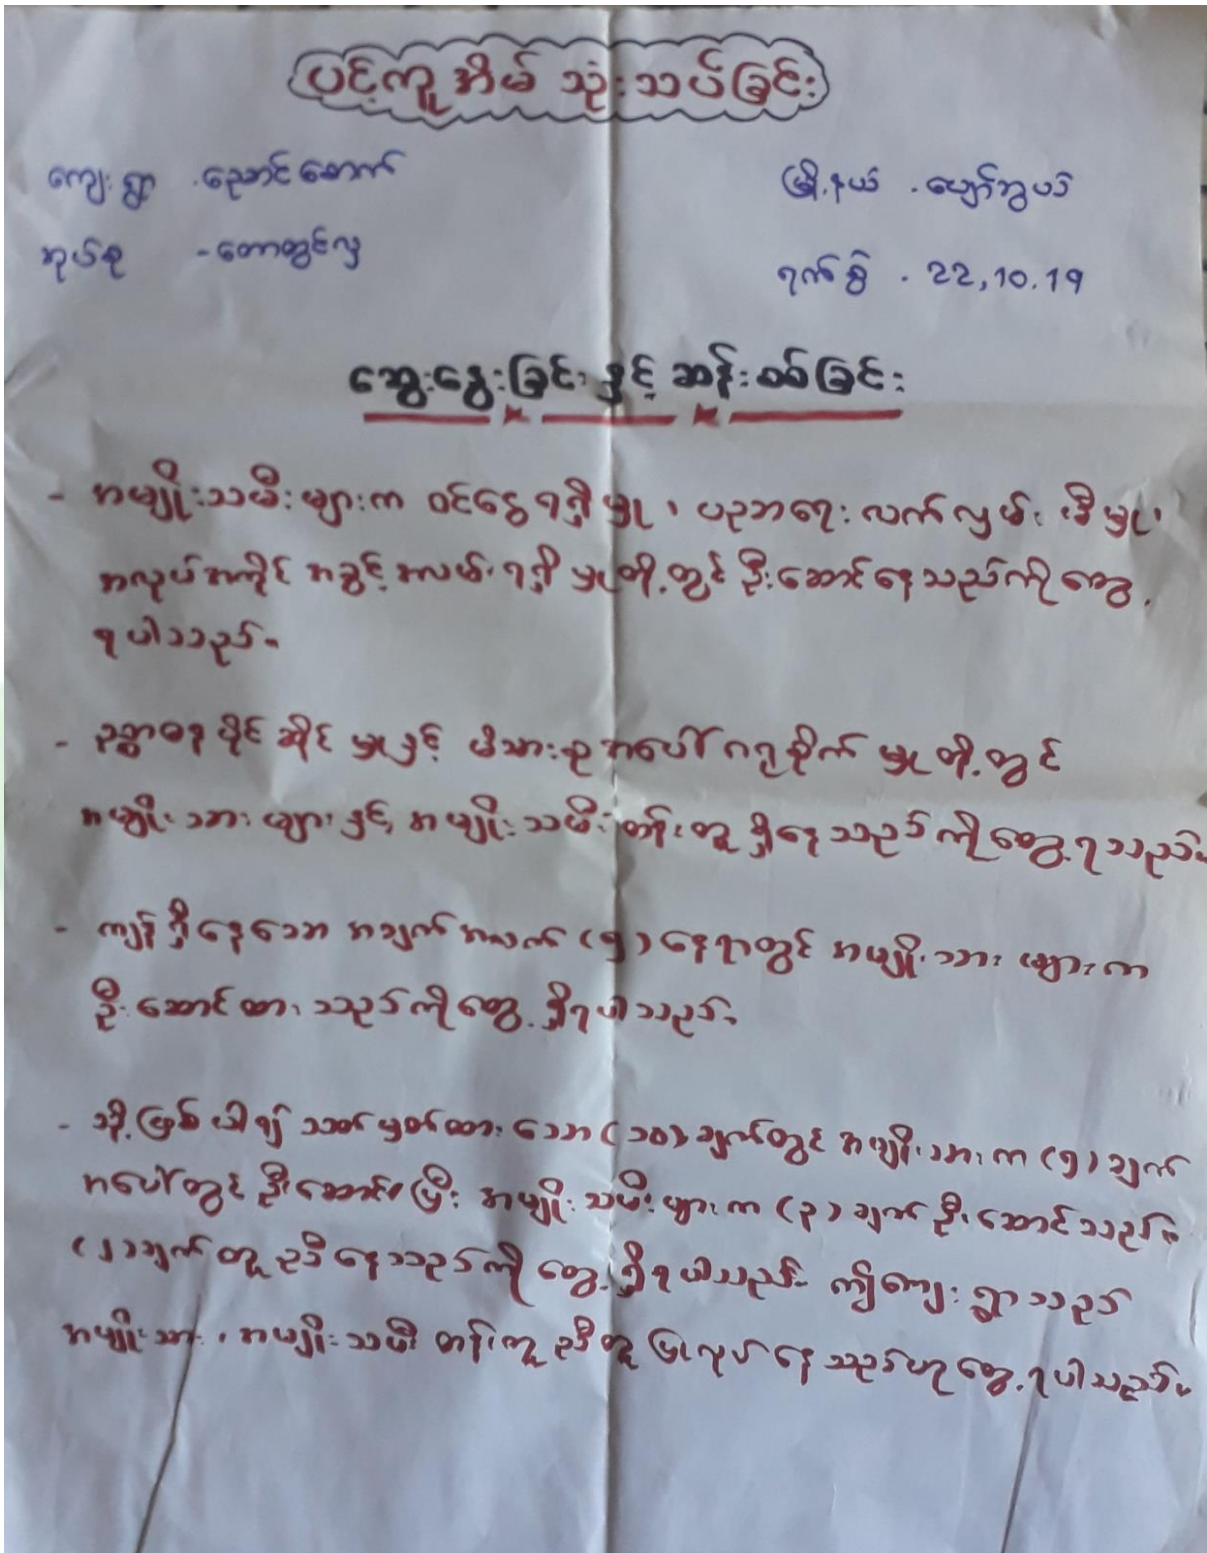 ပင့်ကူအိမ် သုံးသပ်ခြင်း
ကျေးရွာ - ညောင်စောက် မြို့နယ် - ပျော်ဘွယ်
အုပ်စု - တောတွင်လှ ရက်စွဲ - 22,10.19
ဆွေးနွေးခြင်း နှင့် ဆန်းစစ်ခြင်း
- အမျိုးသမီးများက ဝင်ငွေရရှိမှု၊ ပညာရေးလက်လှမ်းမီမှု၊
အလုပ်အကိုင် အခွင့်အလမ်းရရှိမှုတို့တွင် ဦးဆောင်နေသည်ကိုတွေ့
ရပါသည်။
- ဥစ္စာဓနပိုင်ဆိုင်မှုနှင့် မိသားစုအပေါ်ဂရုစိုက်မှုတို့တွင်
အမျိုးသားများနှင့် အမျိုးသမီး တန်းတူရှိနေသည်ကိုတွေ့ရသည်။
- ကျန်ရှိနေသော အချက်အလက် (၅) နေရာတွင် အမျိုးသားများက
ဦးဆောင်ထားသည်ကိုတွေ့ရှိရပါသည်။
- သို့ဖြစ်ပါ၍ သတ်မှတ်ထားသော (၁၀) ချက်တွင် အမျိုးသားက (၅) ချက်
အပေါ်တွင် ဦးဆောင်ပြီး အမျိုးသမီးများက (၃) ချက် ဦးဆောင်သည်။
(၂) ချက် တူညီနေသည်ကို တွေ့ရှိရပါသည်။ ဤကျေးရွာသည်
အမျိုးသား၊ အမျိုးသမီး တန်းတူညီတူ ပြုလုပ်နေသည်ဟုတွေ့ရပါသည်။